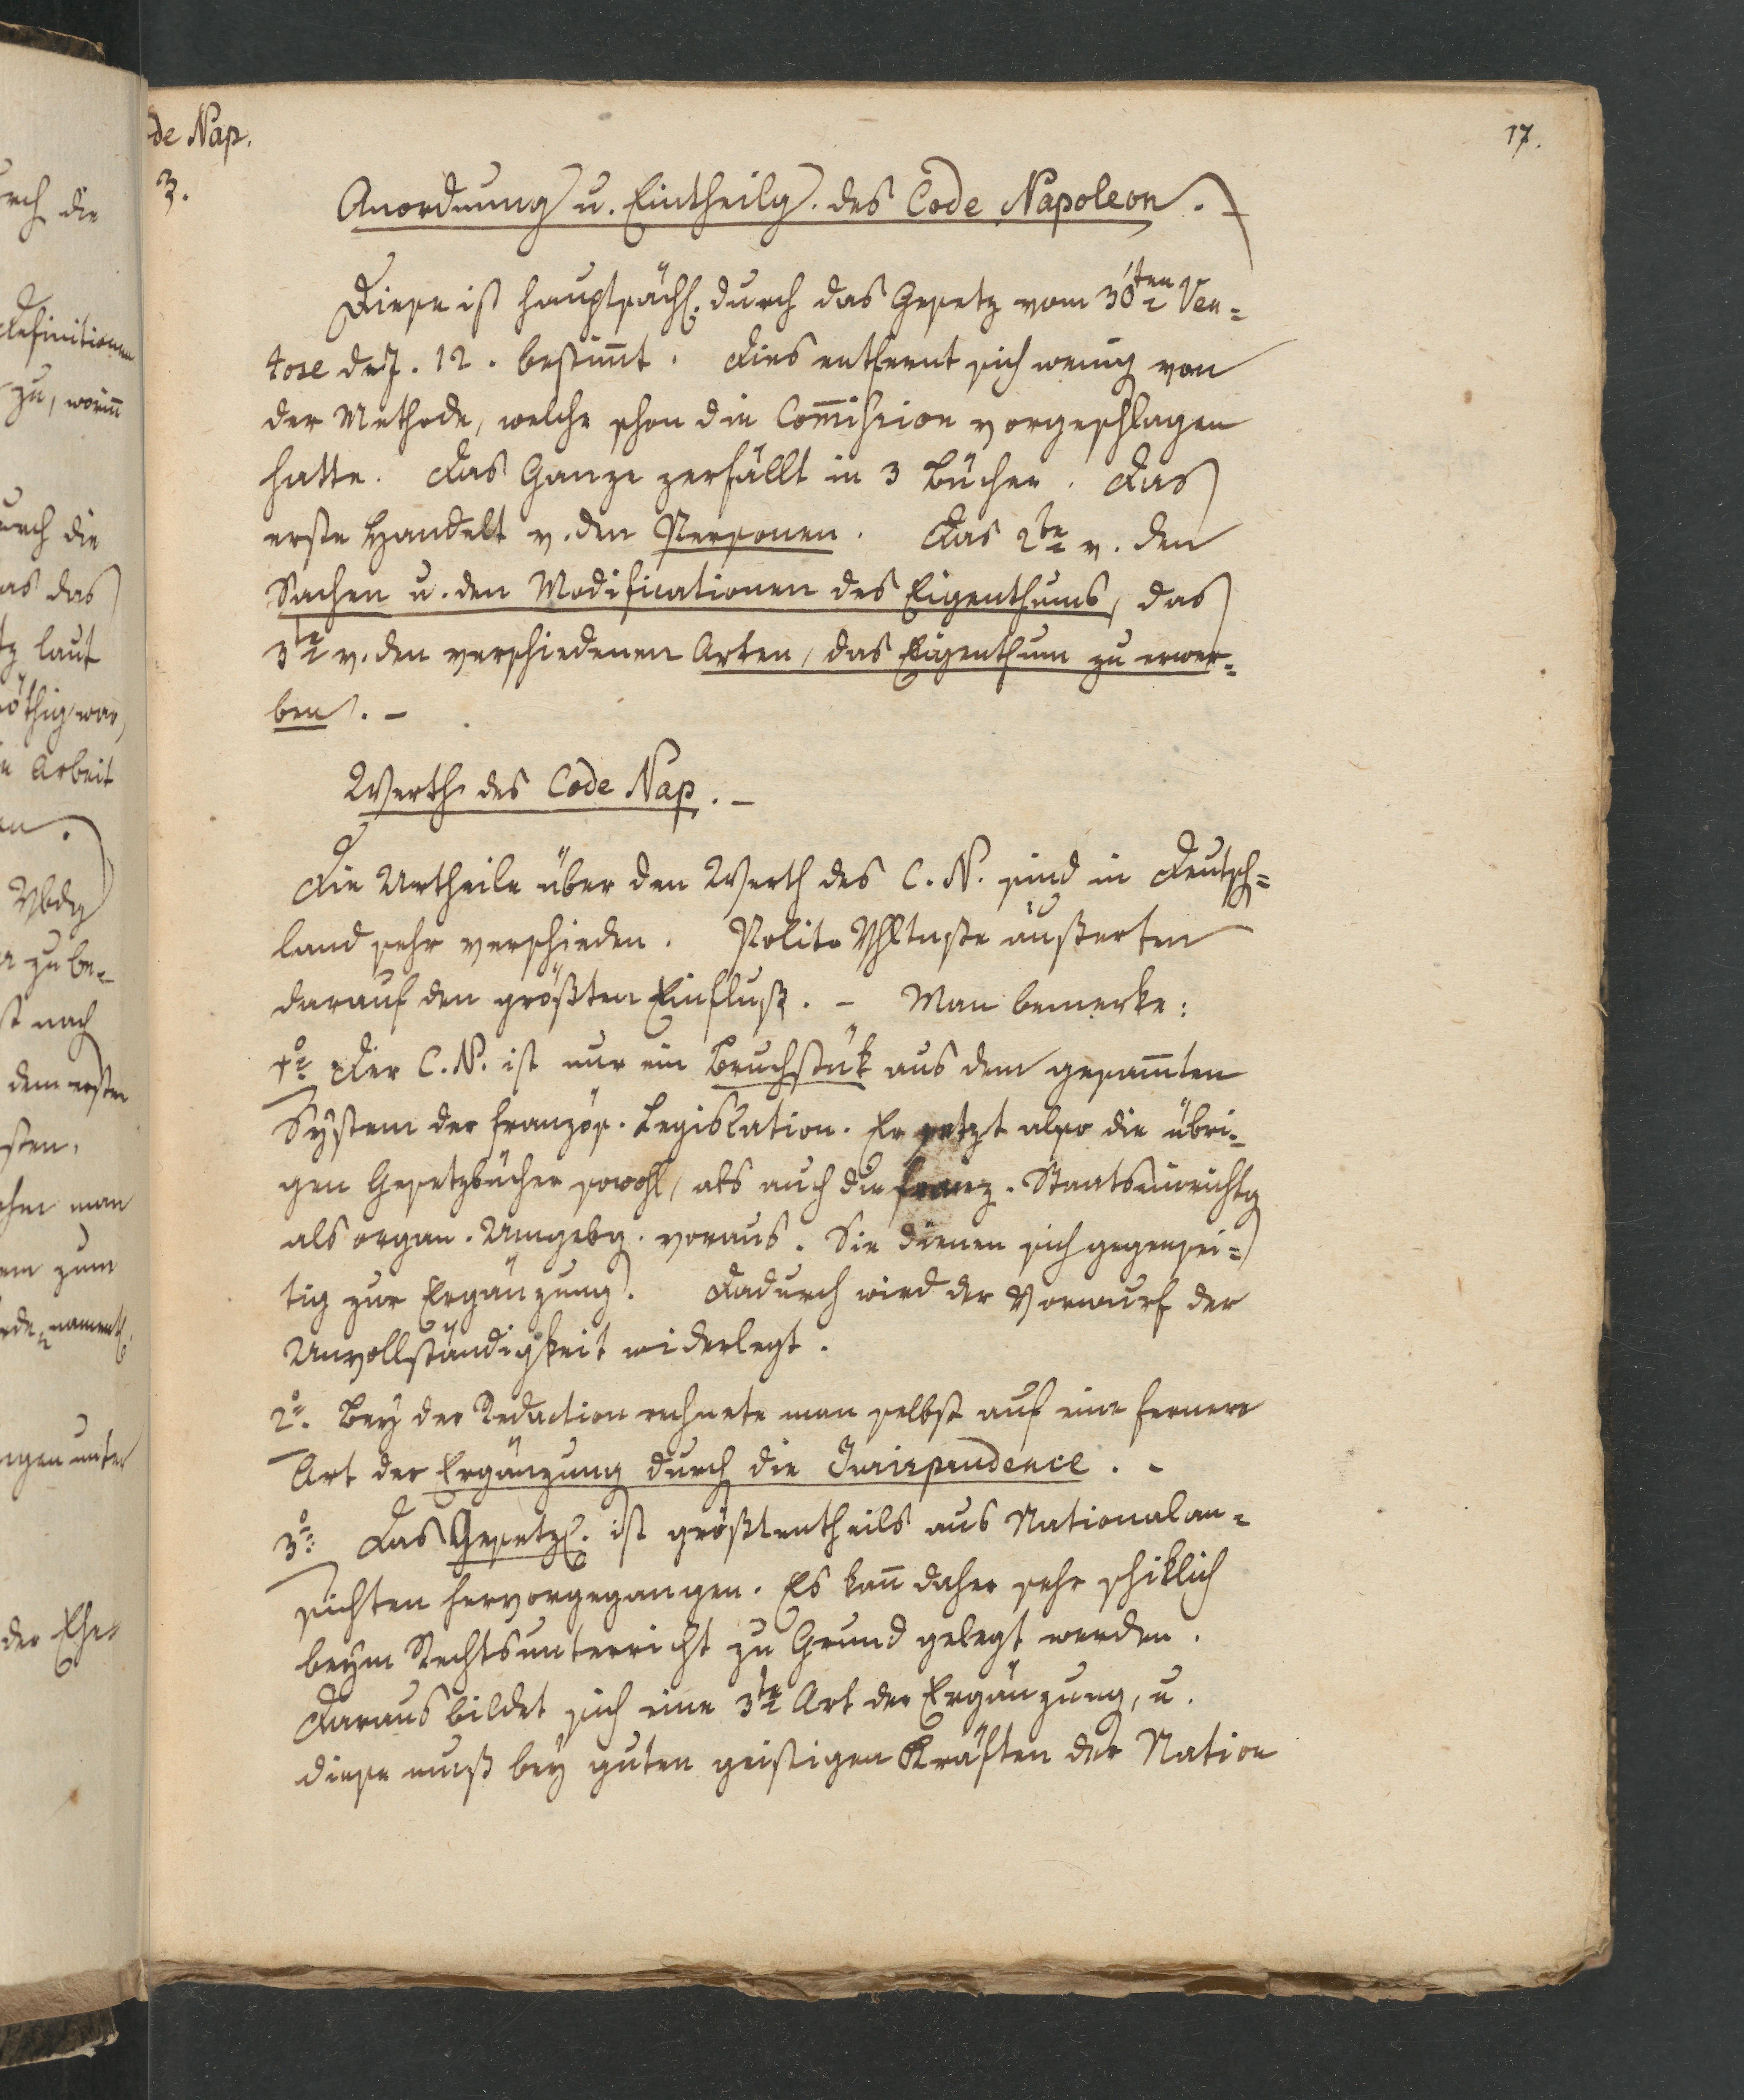 de Nap.
17.
3.
Anordnung u. Eintheilg. des Code Napoleon. –
Diese ist hauptsächl. durch das Gesetz vom 30ten Ven=
tose d. J. 12. bestim̅t. Dies entfernt sich wenig von
der Methode, welche schon die Com̅ission vorgeschlagen
hatte. Das Ganze zerfällt in 3 Bücher. Das
erste Handelt v. den Personen. Das 2te v. den
Sachen u. den Modificationen des Eigenthums, das
3te v. den verschiedenen Arten, das Eigenthum zu erwer=
ben. –
Werth des Code Nap. –
Die Urtheile über den Werth des C. N. sind in Deutsch=
land sehr verschieden. Polit. Vhltnße äußerten
darauf den größten Einfluß. – Man bemerke:
1o. Der C. N. ist nur ein Bruchstük aus dem gesam̅ten
System der französ. Legislation. Er setzt also die übri=
gen Gesetzbücher sowohl, als auch die franz. Staatseinrichtg
als organ. Umgebg. voraus. Sie dienen sich gegensei=
tig zur Ergänzung. Dadurch wird der Vorwurf der
Unvollständigkeit widerlegt.
2o. Bey der Redaction rechnete man selbst auf eine fernere
Art der Ergänzung durch die Jurisprudence. –
3o. Das Gesetzb. ist größtentheils aus Nationalan=
sichten hervorgegangen. Es kan̅ daher sehr schiklich
beym Rechtsunterricht zu Grund gelegt werden.
Daraus bildet sich eine 3te Art der Ergänzung, u.
diese muß bey guten geistigen Kräften der Nation